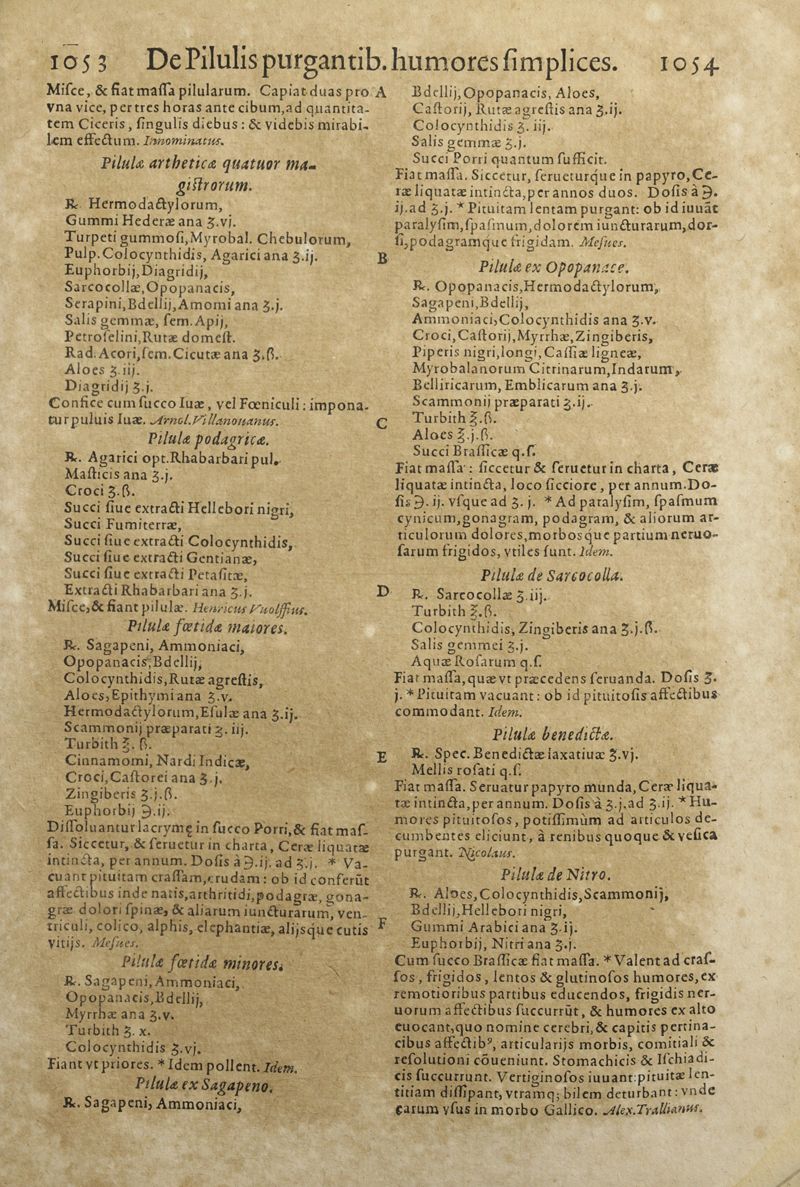 1053 De Pilulis purgantib. humores ſimplices. 1054
Miſce, & fiat maſſa pilularum. Capiat duas pro A
vna vice, per tres horas ante cibum, ad quantita-
tem Ciceris, ſingulis diebus : & videbis mirabi-
lem effectum. Innominatus.
Pilulæ artheticæ quatuor ma-
giſtrorum.
℞. Hermodactylorum,
Gummi Hederæ ana ʒ.vj.
Turpeti gummoſi, Myrobal. Chebulorum,
Pulp. Colocynthidis, Agarici ana ʒ.ij. B
Euphorbij, Diagridij,
Sarcocollæ, Opopanacis,
Serapini, Bdellij, Amomi ana ʒ.j.
Salis gemmæ, ſem. Apij,
Petroſelini, Rutæ domeſt.
Rad. Acori, ſem. Cicutæ ana ʒ.ß.
Aloes ʒ.iij.
Diagridij ʒ.j.
Confice cum ſucco Iuæ, vel Fœniculi : impona-
tur puluis Iuæ. Arnol. Villanouanus. C
Pilulæ podagricæ.
℞. Agarici opt. Rhabarbari pul.
Maſticis ana ʒ.j.
Croci ʒ.ß.
Succi ſiue extracti Hellebori nigri,
Succi Fumiterræ,
Succi ſiue extracti Colocynthidis,
Succi ſiue extracti Gentianæ,
Succi ſiue extracti Petaſitæ,
Extracti Rhabarbari ana ʒ.j. D
Miſce, & fiant pilulæ. Henricus Vuolffius.
Pilulæ fœtidæ maiores.
℞. Sagapeni, Ammoniaci,
Opopanacis, Bdellij,
Colocynthidis, Rutæ agreſtis,
Aloes, Epithymi ana ʒ.v.
Hermodactylorum, Eſulæ ana ʒ.ij.
Scammonij præparati ʒ. iij.
Turbith ℥. ß.
Cinnamomi, Nardi Indicæ, E
Croci, Caſtorei ana ʒ.j.
Zingiberis ʒ.j.ß.
Euphorbij ℈.ij.
Diſſoluantur lacrymę in ſucco Porri, & fiat maſ-
ſa. Siccetur, & ſeruetur in charta, Ceræ liquatæ
intincta, per annum. Doſis à ℈.ij. ad ʒ.j. * Va-
cuant pituitam craſſam, crudam : ob id conferūt
affectibus inde natis, arthritidi, podagræ, gona-
græ dolori ſpinæ, & aliarum iuncturarum, ven-
triculi, colico, alphis, elephantiæ, alijsque cutis F
vitijs. Meſues.
Pilulæ fœtidæ minores.
℞. Sagapeni, Ammoniaci,
Opopanacis, Bdellij,
Myrrhæ ana ʒ.v.
Turbith ʒ. x.
Colocynthidis ʒ.vj.
Fiant vt priores. * Idem pollent. Idem.
Pilulæ ex Sagapeno.
℞. Sagapeni, Ammoniaci,
Bdellij, Opopanacis, Aloes,
Caſtorij, Rutæ agreſtis ana ʒ.ij.
Colocynthidis ʒ. iij.
Salis gemmæ ʒ.j.
Succi Porri quantum ſufficit.
Fiat maſſa. Siccetur, ſerueturque in papyro, Ce-
ræ liquatæ intincta, per annos duos. Doſis à ℈.
ij. ad ʒ.j. * Pituitam lentam purgant: ob id iuuāt
paralyſim, ſpaſmum, dolorem iuncturarum, dor-
ſi, podagramque frigidam. Meſues.
Pilulæ ex Opopanace.
℞. Opopanacis, Hermodactylorum,
Sagapeni, Bdellij,
Ammoniaci, Colocynthidis ana ʒ.v.
Croci, Caſtorij, Myrrhæ, Zingiberis,
Piperis nigri, longi, Caſſiæ ligneæ,
Myrobalanorum Citrinarum, Indarum,
Belliricarum, Emblicarum ana ʒ.j.
Scammonij præparati ʒ.ij.
Turbith ℥.ß.
Aloes ℥.j.ß.
Succi Braſſicæ q.ſ.
Fiat maſſa : ſiccetur & ſeruetur in charta, Ceræ
liquatæ intincta, loco ſicciore, per annum. Do-
ſis ℈. ij. vſque ad ʒ. j. * Ad paralyſim, ſpaſmum
cynicum, gonagram, podagram, & aliorum ar-
ticulorum dolores, morbosque partium neruo-
ſarum frigidos, vtiles ſunt. Idem.
Pilulæ de Sarcocolla.
℞. Sarcocollæ ʒ.iij.
Turbith ℥.ß.
Colocynthidis, Zingiberis ana ʒ.j.ß.
Salis gemmei ʒ.j.
Aquæ Roſarum q.ſ.
Fiat maſſa, quæ vt præcedens ſeruanda. Doſis ʒ.
j. * Pituitam vacuant : ob id pituitoſis affectibus
commodant. Idem.
Pilulæ benedictæ.
℞. Spec. Benedictæ laxatiuæ ʒ.vj.
Mellis roſati q.ſ.
Fiat maſſa. Seruatur papyro munda, Ceræ liqua-
tæ intincta, per annum. Doſis à ʒ.j. ad ʒ.ij. * Hu-
mores pituitoſos, potiſſimùm ad articulos de-
cumbentes eliciunt, à renibus quoque & veſica
purgant. Nicolaus.
Pilulæ de Nitro.
℞. Aloes, Colocynthidis, Scammonij,
Bdellij, Hellebori nigri,
Gummi Arabici ana ʒ.ij.
Euphorbij, Nitri ana ʒ.j.
Cum ſucco Braſſicæ fiat maſſa. * Valent ad craſ-
ſos, frigidos, lentos & glutinoſos humores, ex
remotioribus partibus educendos, frigidis ner-
uorum affectibus ſuccurrūt, & humores ex alto
euocant, quo nomine cerebri, & capitis pertina-
cibus affectibꝰ, articularijs morbis, comitiali &
reſolutioni cōueniunt. Stomachicis & Iſchiadi-
cis ſuccurrunt. Vertiginoſos iuuant: pituitæ len-
titiam diſſipant, vtramq; bilem deturbant : vnde
earum vſus in morbo Gallico. Alex. Trallianus.